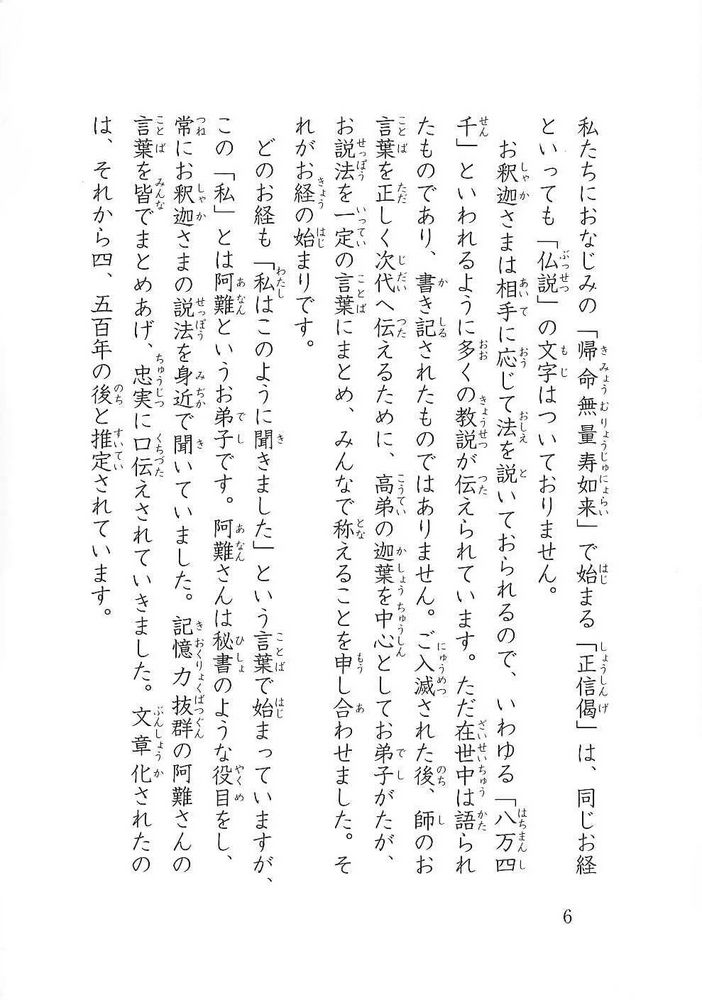 私たちにおなじみの「帰命無量寿如来」で始まる「正信偈」は、同じお経
といっても「仏説」の文字はついておりません。
お釈迦さまは相手に応じて法を説いておられるので、いわゆる「八万四
千」といわれるように多くの教説が伝えられています。ただ在世中は語られ
たものであり、書き記されたものではありません。ご入滅された後、師のお
言葉を正しく次代へ伝えるために、高弟の迦葉を中心としてお弟子がたが、
お説法を一定の言葉にまとめ、みんなで称えることを申し合わせました。そ
れがお経の始まりです。
どのお経も「私はこのように聞きました」という言葉で始まっていますが、
この「私」とは阿難というお弟子です。阿難さんは秘書のような役目をし、
常にお釈迦さまの説法を身近で聞いていました。記憶力抜群の阿難さんの
言葉を皆でまとめあげ、忠実に口伝えされていきました。文章化されたの
は、それから四、五百年の後と推定されています。
6